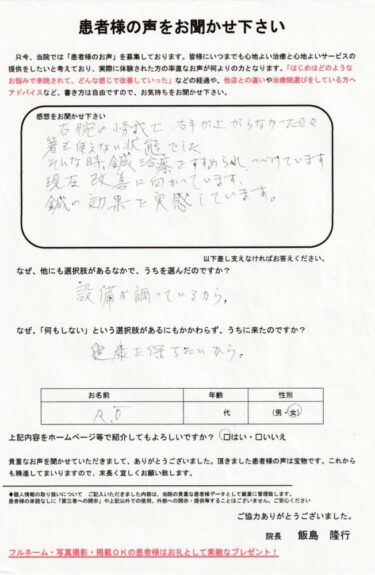 患者様の声をお聞かせ下さい
只今、当院では「患者様のお声」を募集しております。皆様にいつまでも心地よい治療と心地よいサービスの
提供をしたいと考えており、実際に体験された方の率直なお声が何よりの力となります。「はじめはどのような
お悩みで来院されて、どんな感じで改善していった」などの経過や、他店との違いや治療院選びをしている方へ
アドバイスなど、書き方は自由ですので、お気持ちをお聞かせ下さい。
感想をお聞かせ下さい
右腕の怪我で、右手が上がらなかった日々
箸も使えない状態でした。
そんな時、鍼治療をすすめられ、つづけています
現在 改善に向かっています。
鍼の効果を実感しています。
以下差し支えなければお答えください。
なぜ、他にも選択肢があるなかで、うちを選んだのですか？
設備が調っているから。
なぜ、「何もしない」という選択肢があるにもかかわらず、うちに来たのですか？
健康を保ちたいから。
お名前 年齢 性別
R.O 代 (男・女)
上記内容をホームページ等で紹介してもよろしいですか？ □はい・□いいえ
貴重なお声を聞かせていただきまして、ありがとうございました。頂きました患者様の声は宝物です。これから
も精進してまいりますので、末長く宜しくお願い致します。
◆個人情報の取り扱いについて ご記入いただきました内容は、当院の貴重な患者様データとして厳重に管理致します。
患者様の承諾なしに「第三者への開示」や上記以外での使用、外部への開示・提供等することはございません。ご安心ください
ご協力ありがとうございました。
院長 飯島 隆行
フルネーム・写真撮影・掲載ＯＫの患者様はお礼として素敵なプレゼント！